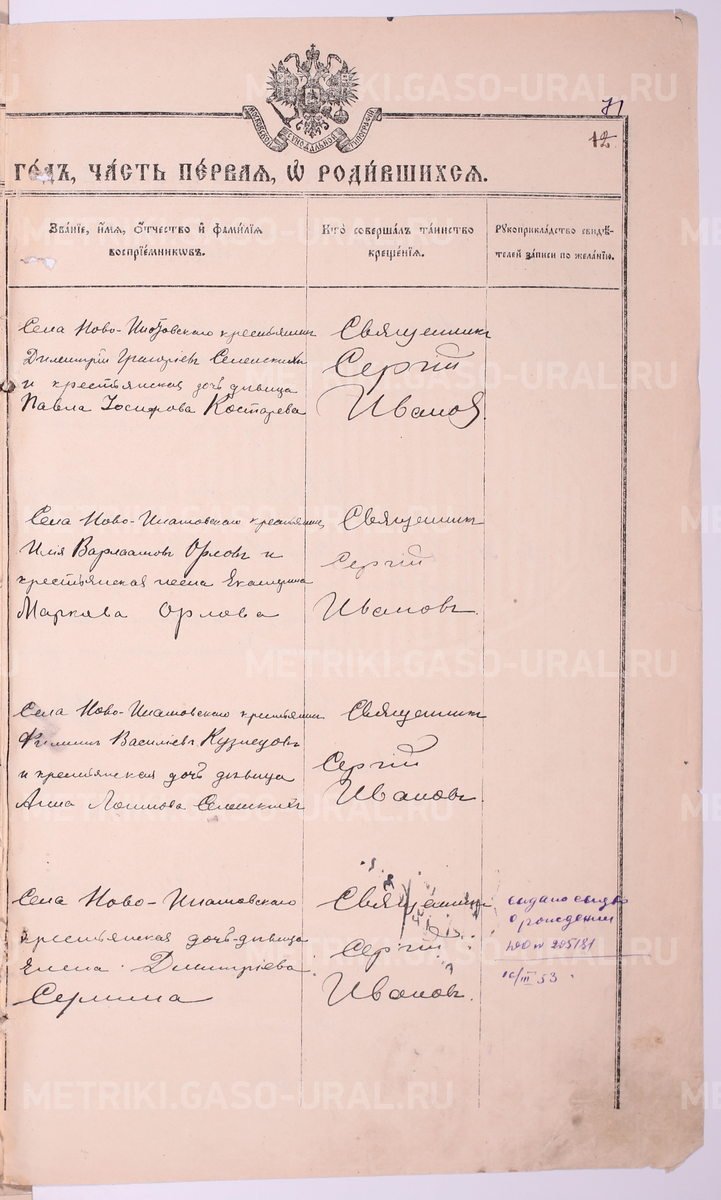 METRIKI.GASO-URAL.RU
71
12
МОСКОВСКОЙ СѴНОДАЛЬНОЙ ТИПОГРАФІИ
ГО́ДЪ, ЧА́СТЬ ПЕ́РВАЯ, Ѡ҆ РОДИ́ВШИХСЯ.
Зва́нїе, и҆́мѧ, ѻ҆́тчество и҆ фами́лїѧ
воспрїе́мникѡвъ.
Кто̀ соверша́лъ та́инство
креще́нїѧ.
Рꙋкоприкла́дство свидѣ́-
телей за́писи по жела́нїю.
Села Ново-Ипатовскаго крестьянинъ
Димитрій Григорьевъ
и крестьянская дочь девица
Павла Іосифова Костарева
Священникъ
Сергій
Ивановъ
Села Ново-Ипатовскаго крестьянинъ
Варлаамовъ Орловъ и
крестьянская жена Екатерина
Маркова Орлова
Священникъ
Сергій
Ивановъ.
Села Ново-Ипатовскаго крестьянинъ
Филиппъ Василіевъ Кузнецовъ
и крестьянская дочь девица
Анна Логинова
Священникъ
Сергій
Ивановъ.
Села Ново-Ипатовскаго
крестьянская дочь-девица
Елена Димитріева
Священникъ
Сергій
Ивановъ.
выдано свид-во
о рождении
16/III 53